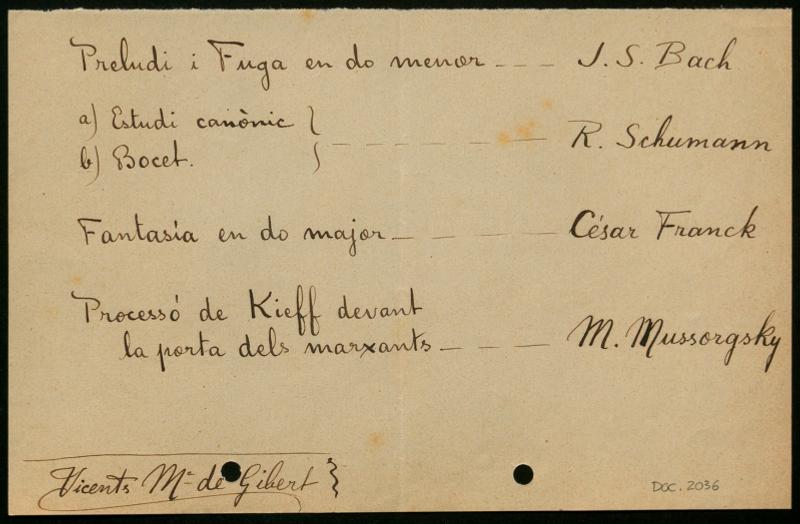 Preludi i Fuga en do menor --- J. S. Bach
a) Estudi canònic
b) Bocet. ------ R. Schumann
Fantasía en do major ---- César Franck
Processó de Kieff devant
la porta dels marxants ---- M. Mussorgsky
Vicents Mª de Gibert
DOC. 2036